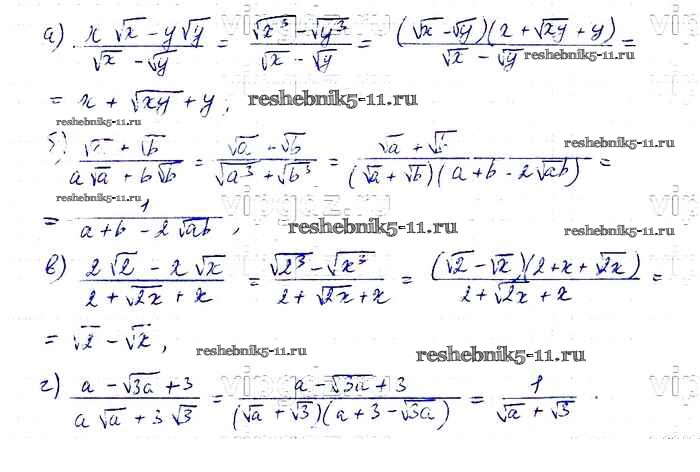 а) (x√x − y√y)/(√x − √y) = (√x³ − √y³)/(√x − √y) = ((√x − √y)(x + √xy + y))/(√x − √y) =
= x + √xy + y;
reshebnik5-11.ru
reshebnik5-11.ru
б) (√a + √b)/(a√a + b√b) = (√a + √b)/(√a³ + √b³) = (√a + √b)/((√a + √b)(a + b − 2√ab)) =
= 1/(a + b − 2√ab),
reshebnik5-11.ru
reshebnik5-11.ru
в) (2√2 − x√x)/(2 + √2x + x) = (√2³ − √x³)/(2 + √2x + x) = ((√2 − √x)(2 + x + √2x))/(2 + √2x + x) =
= √2 − √x,
reshebnik5-11.ru
reshebnik5-11.ru
г) (a − √3a + 3)/(a√a + 3√3) = (a − √3a + 3)/((√a + √3)(a + 3 − √3a)) = 1/(√a + √3)